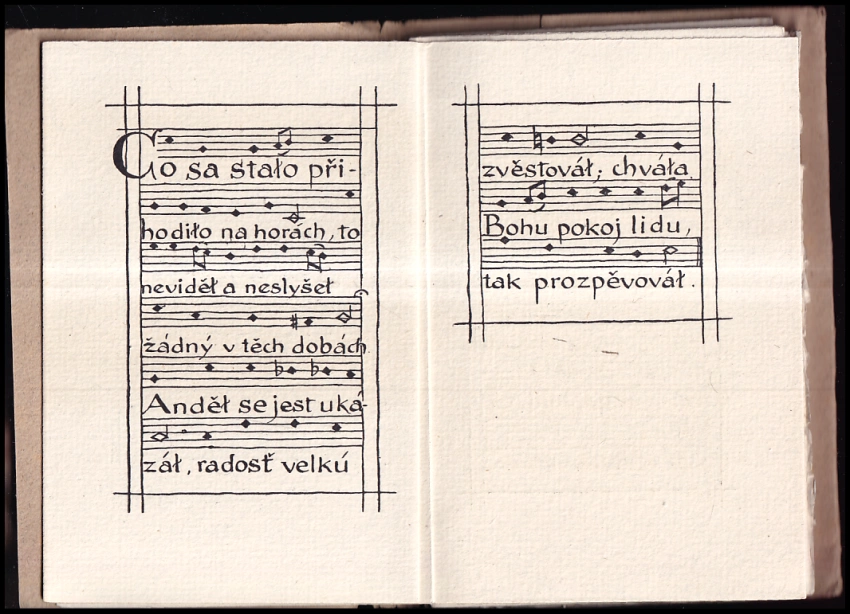 Co sa stało při-
hodiło na horách, to
neviděł a neslyšeł
žádný v těch dobách
Anděł se jest uká-
záł, radosť velkú
zvěstováł; chváła
Bohu pokoj lidu,
tak prozpěvováł.